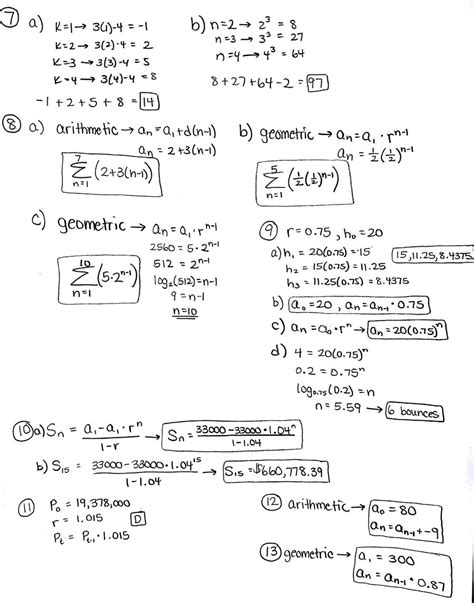 7 a) K=1→ 3(1)-4 = -1
K=2→ 3(2)-4 = 2
K=3 → 3(3)-4 = 5
K=4→ 3(4)-4 = 8
-1 + 2 + 5 + 8 = 14
b) n=2→ 2³ = 8
n=3 → 3³ = 27
n=4→ 4³ = 64
8+27+64-2 = 97
8 a) arithmetic → aₙ=a₁+d(n-1)
aₙ = 2+3(n-1)
7 Σ n=1 (2+3(n-1))
b) geometric → aₙ=a₁·rⁿ⁻¹
aₙ = 1/2(1/2)ⁿ⁻¹
5 Σ n=1 (1/2(1/2)ⁿ⁻¹)
c) geometric → aₙ=a₁·rⁿ⁻¹
2560 = 5·2ⁿ⁻¹
512 = 2ⁿ⁻¹
log₂(512)=n-1
9 = n-1
n=10
10 Σ n=1 (5·2ⁿ⁻¹)
9 r=0.75, h₀=20
a) h₁ = 20(0.75)=15
h₂ = 15(0.75) = 11.25
h₃ = 11.25(0.75) = 8.4375
15, 11.25, 8.4375
b) a₀=20, aₙ=aₙ₋₁·0.75
c) aₙ=a₀·rⁿ→ aₙ=20(0.75)ⁿ
d) 4 = 20(0.75)ⁿ
0.2 = 0.75ⁿ
log₀.₇₅(0.2) = n
n = 5.59 → 6 bounces
10 a) Sₙ = a₁-a₁·rⁿ / 1-r → Sₙ = 33000-33000·1.04ⁿ / 1-1.04
b) S₁₅ = 33000-33000·1.04¹⁵ / 1-1.04 → S₁₅=$660,778.39
11 P₀ = 19,378,000
r = 1.015 D
Pₜ = Pₜ₋₁·1.015
12 arithmetic→ a₀ = 80
aₙ=aₙ₋₁+-9
13 geometric→ a₁ = 300
aₙ=aₙ₋₁·0.87